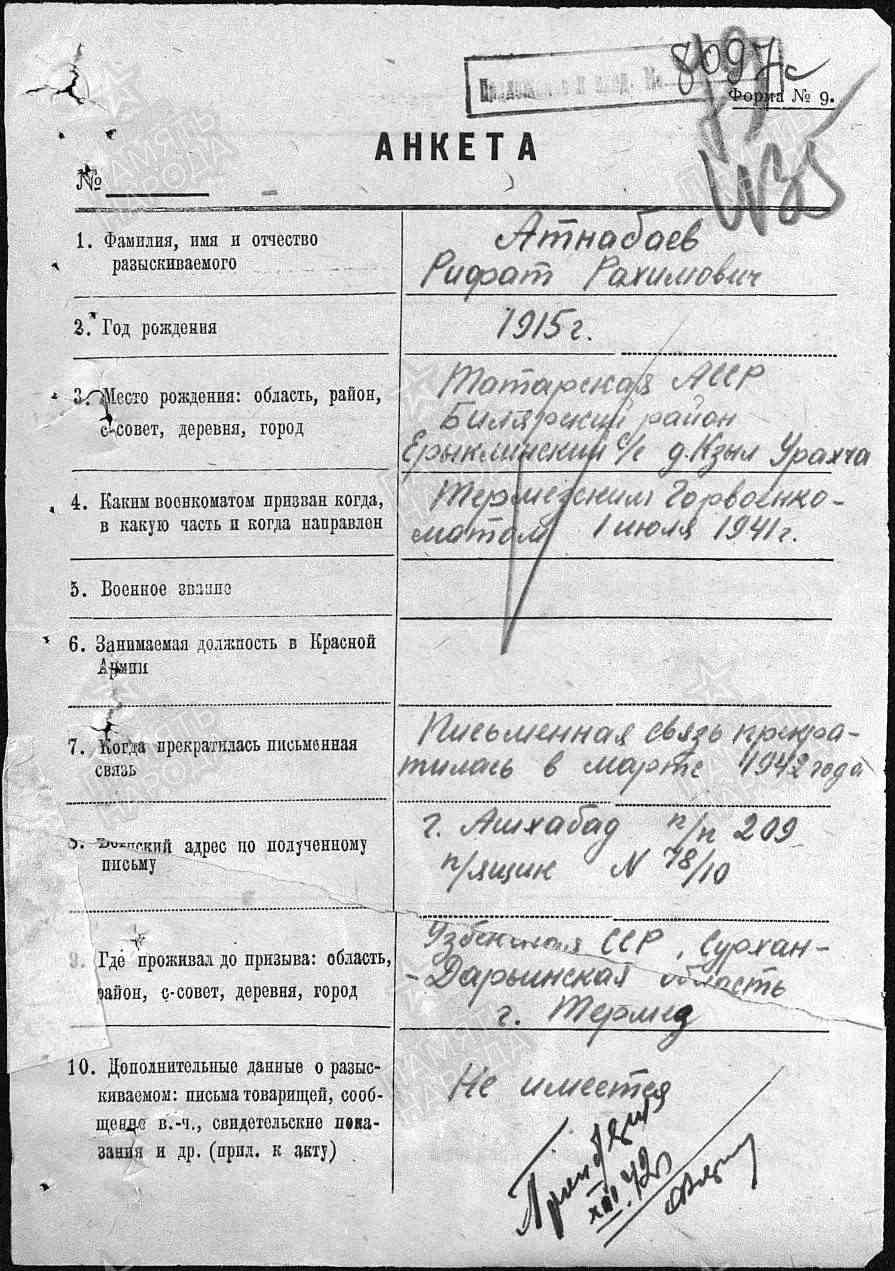 8097с
вход. №
Форма № 9.
АНКЕТА
№
1. Фамилия, имя и отчество
разыскиваемого
Атнабаев
Рифат Рахимович
2. Год рождения
1915 г.
3. Место рождения: область, район,
с-совет, деревня, город
Татарская АССР
Билярский район
Ерыклинский с/с д. Кзыл Урахча
4. Каким военкоматом призван когда,
в какую часть и когда направлен
Термезским Горвоенко-
матом 1 июля 1941 г.
5. Военное звание
6. Занимаемая должность в Красной
Армии
7. Когда прекратилась письменная
связь
Письменная связь прекра-
тилась в марте 1942 года
8. Воинский адрес по полученному
письму
г. Ашхабад п/п 209
п/ящик N 78/10
9. Где проживал до призыва: область,
район, с-совет, деревня, город
Узбекская ССР, Сурхан-
-Дарьинская область
г. Термез
10. Дополнительные данные о разыс-
киваемом: письма товарищей, сооб-
щение в.-ч., свидетельские пока-
зания и др. (прил. к акту)
Не имеется
ПАМЯТЬ
НАРОДА